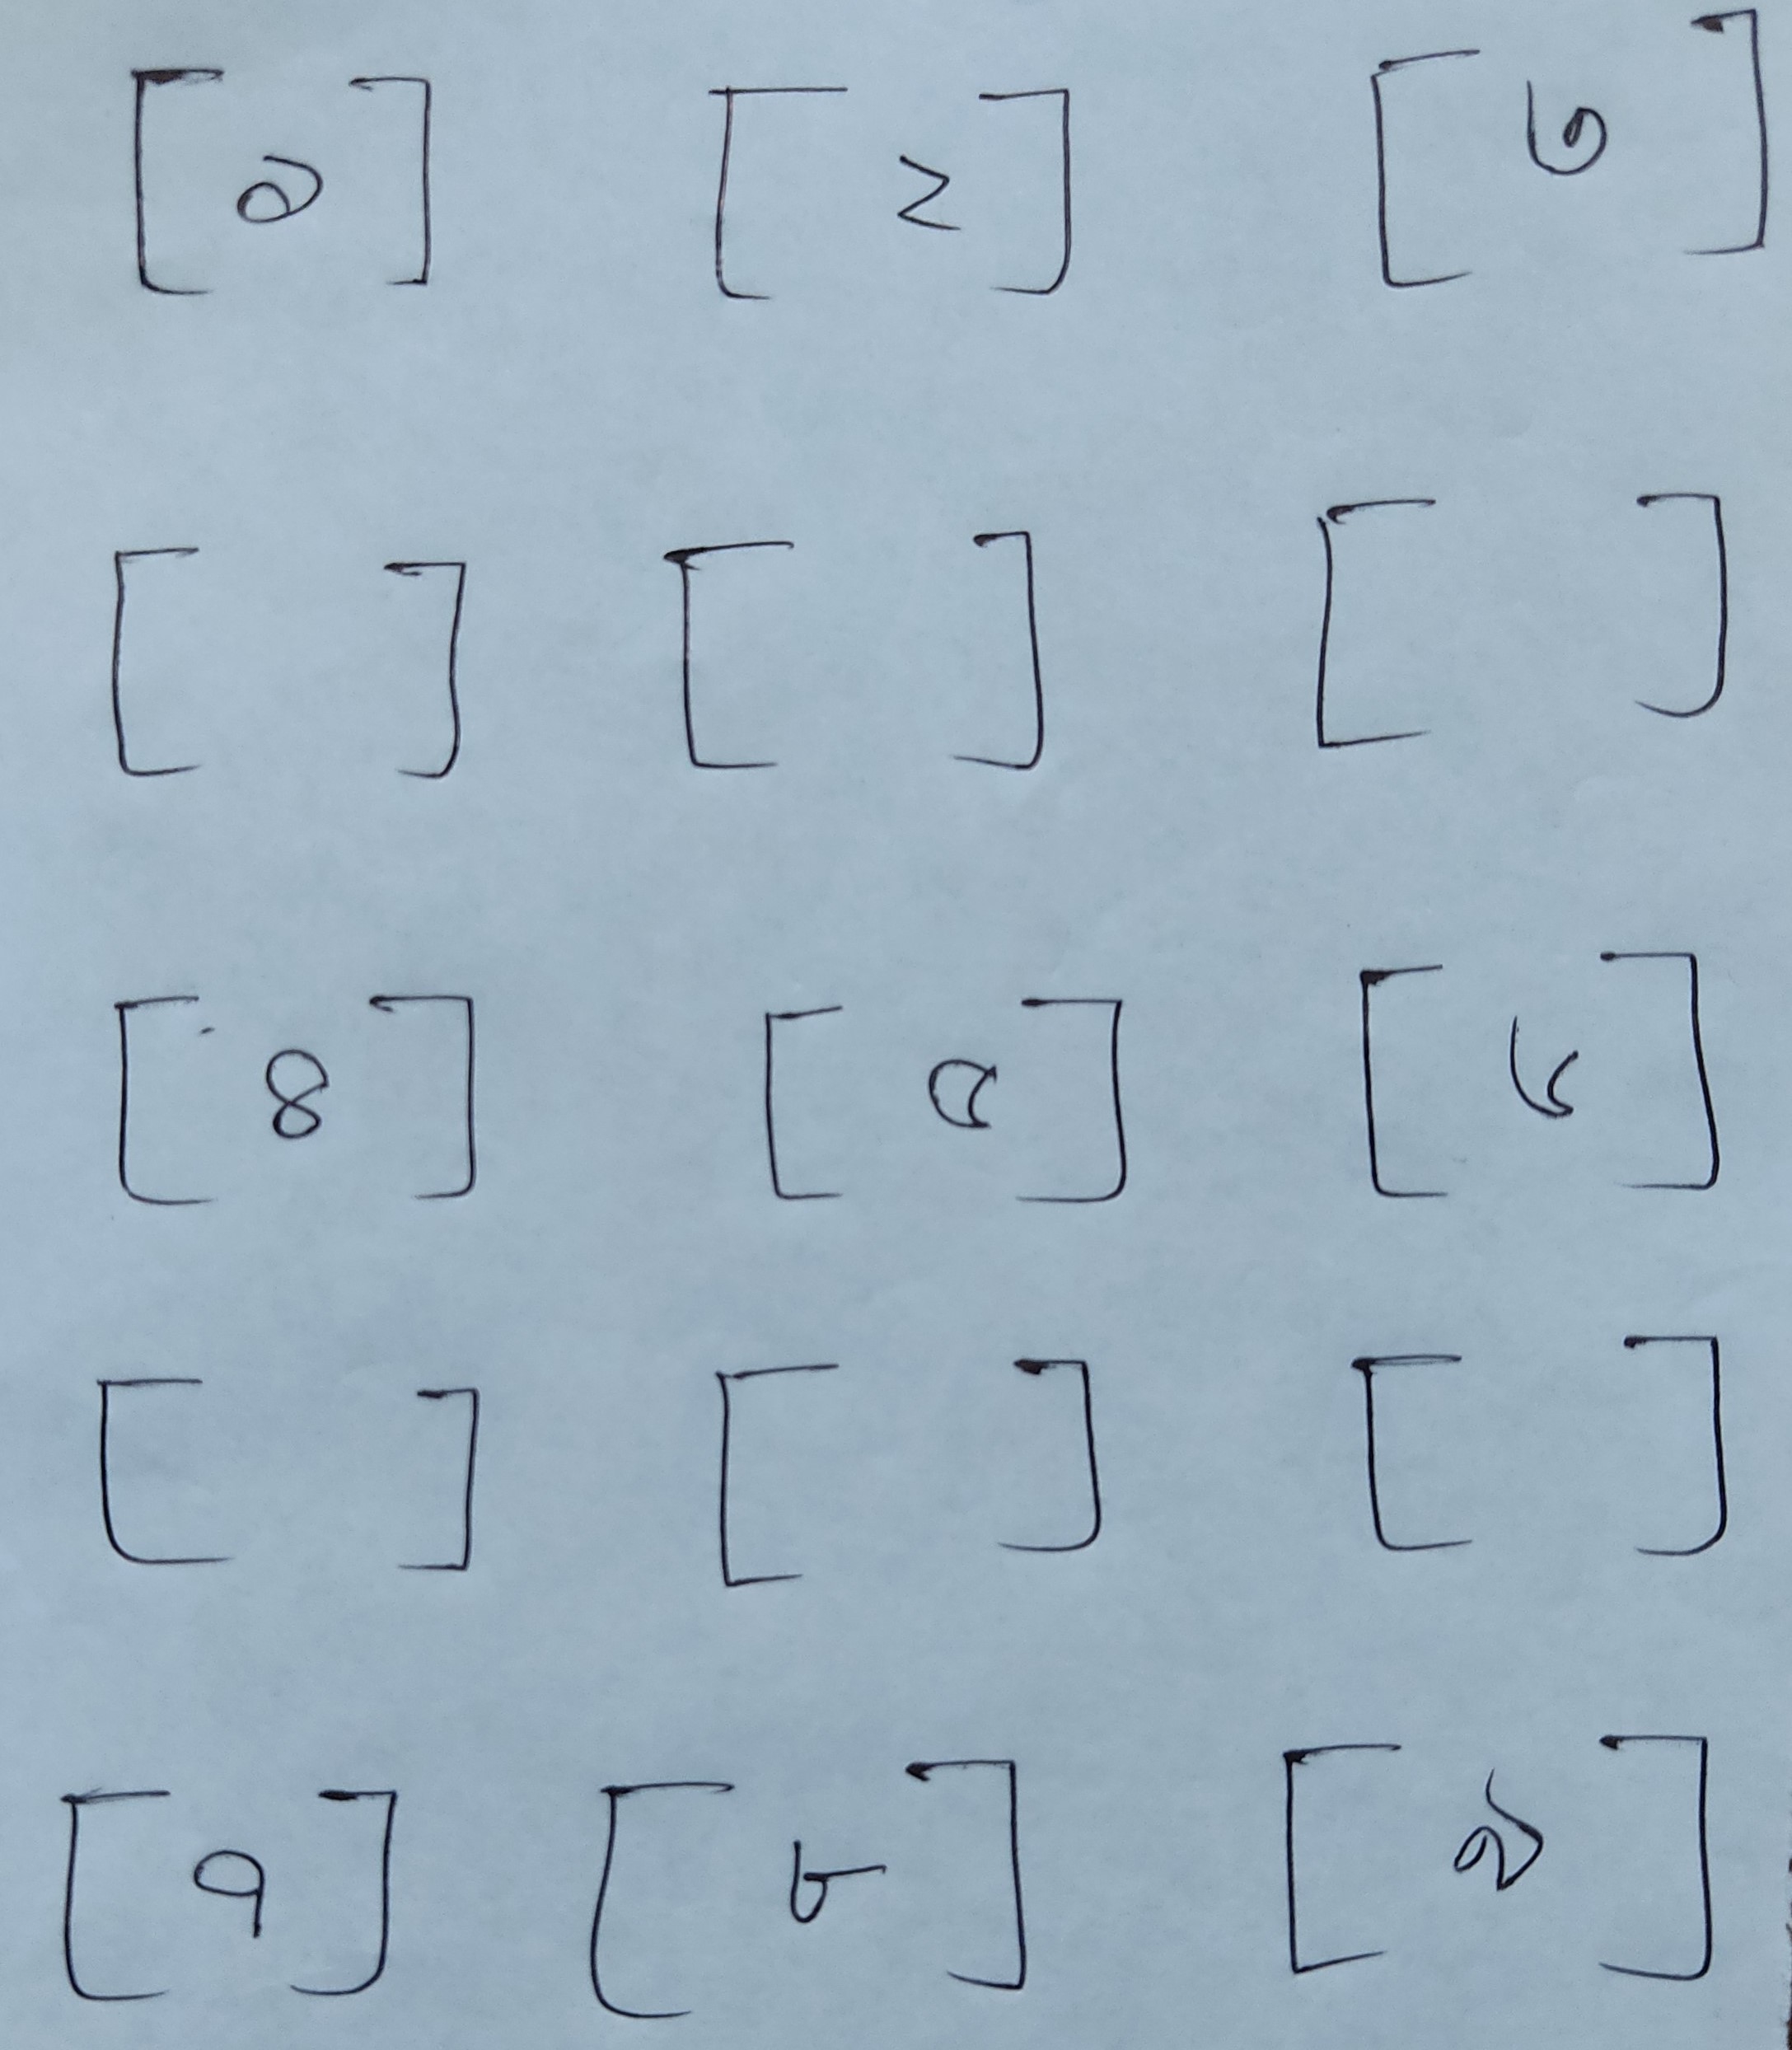 [ ১ ] [ ২ ] [ ৩ ]
[ ] [ ] [ ]
[ ৪ ] [ ৫ ] [ ৬ ]
[ ] [ ] [ ]
[ ৭ ] [ ৮ ] [ ৯ ]